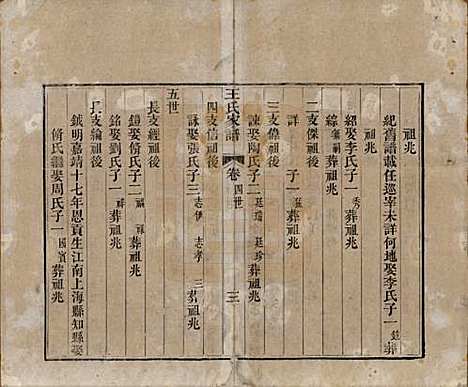 祖兆
紀舊譜載任巡宰未詳何地娶李氏子一 鉞 葬
祖兆
經娶李氏子一 秀 葬祖兆
綜 無嗣 葬祖兆
二支傑祖後
詳 子一 葬祖兆
三支偉祖後
諫娶陶氏子二 廷瑞 廷珍 葬祖兆
四支信祖後
詠娶張氏子三 志伊 志孝 三 葬祖兆
王氏家譜 卷 四世 三
五世
長支經祖後
鎧娶脩氏子二 祿 葬祖兆
銘娶劉氏子一 祥 葬祖兆
長支綸祖後
鉞明嘉靖十七年恩貢生江南上海縣知縣娶
脩氏繼娶周氏子一 國賓 葬祖兆